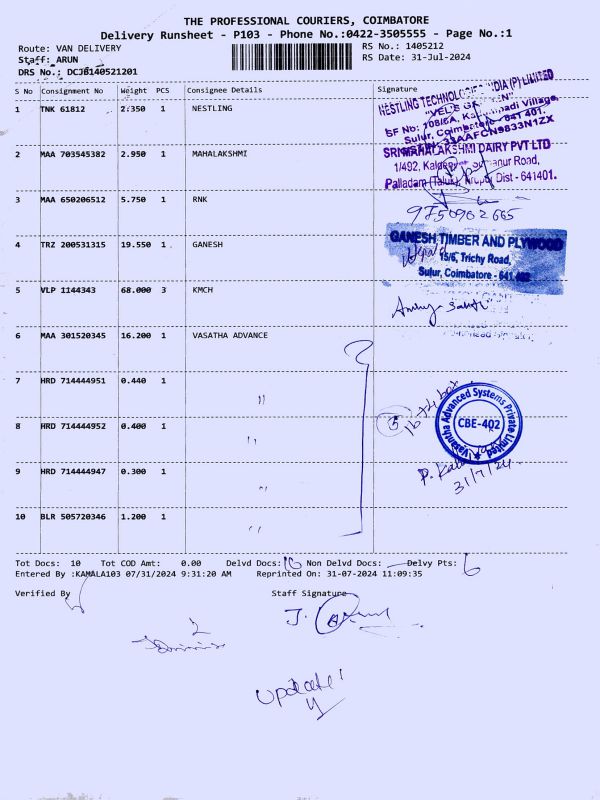 THE PROFESSIONAL COURIERS, COIMBATORE
Delivery Runsheet - P103 - Phone No.:0422-3505555 - Page No.:1
Route: VAN DELIVERY
RS No.: 1405212
Staff: ARUN
RS Date: 31-Jul-2024
DRS No.: DCJB140521201
S No Consignment No Weight PCS Consignee Details Signature
1 TNK 61812 2.350 1 NESTLING
NESTLING TECHNOLOGIES INDIA (P) LIMITED
Sulur, Coimbatore - 641 401.
33AAFCN9833N1ZX
2 MAA 703545382 2.950 1 MAHALAKSHMI
SRI MAHALAKSHMI DAIRY PVT LTD
1/492, Road,
Palladam (Taluk), Tirupur Dist - 641401.
3 MAA 650206512 5.750 1 RNK
9750902665
4 TRZ 200531315 19.550 1 GANESH
GANESH TIMBER AND PLYWOOD
15/6, Trichy Road,
Sulur, Coimbatore - 641 402
5 VLP 1144343 68.000 3 KMCH
6 MAA 301520345 16.200 1 VASATHA ADVANCE
7 HRD 714444951 0.440 1 "
8 HRD 714444952 0.400 1 "
9 HRD 714444947 0.300 1 "
10 BLR 505720346 1.200 1 "
5
Vasantha Advanced Systems Private Limited
CBE-402
31/7/24
Tot Docs: 10 Tot COD Amt: 0.00 Delvd Docs: 10 Non Delvd Docs: — Delvy Pts: 6
Entered By :KAMALA103 07/31/2024 9:31:20 AM Reprinted On: 31-07-2024 11:09:35
Verified By
Staff Signature
J. Arun
update